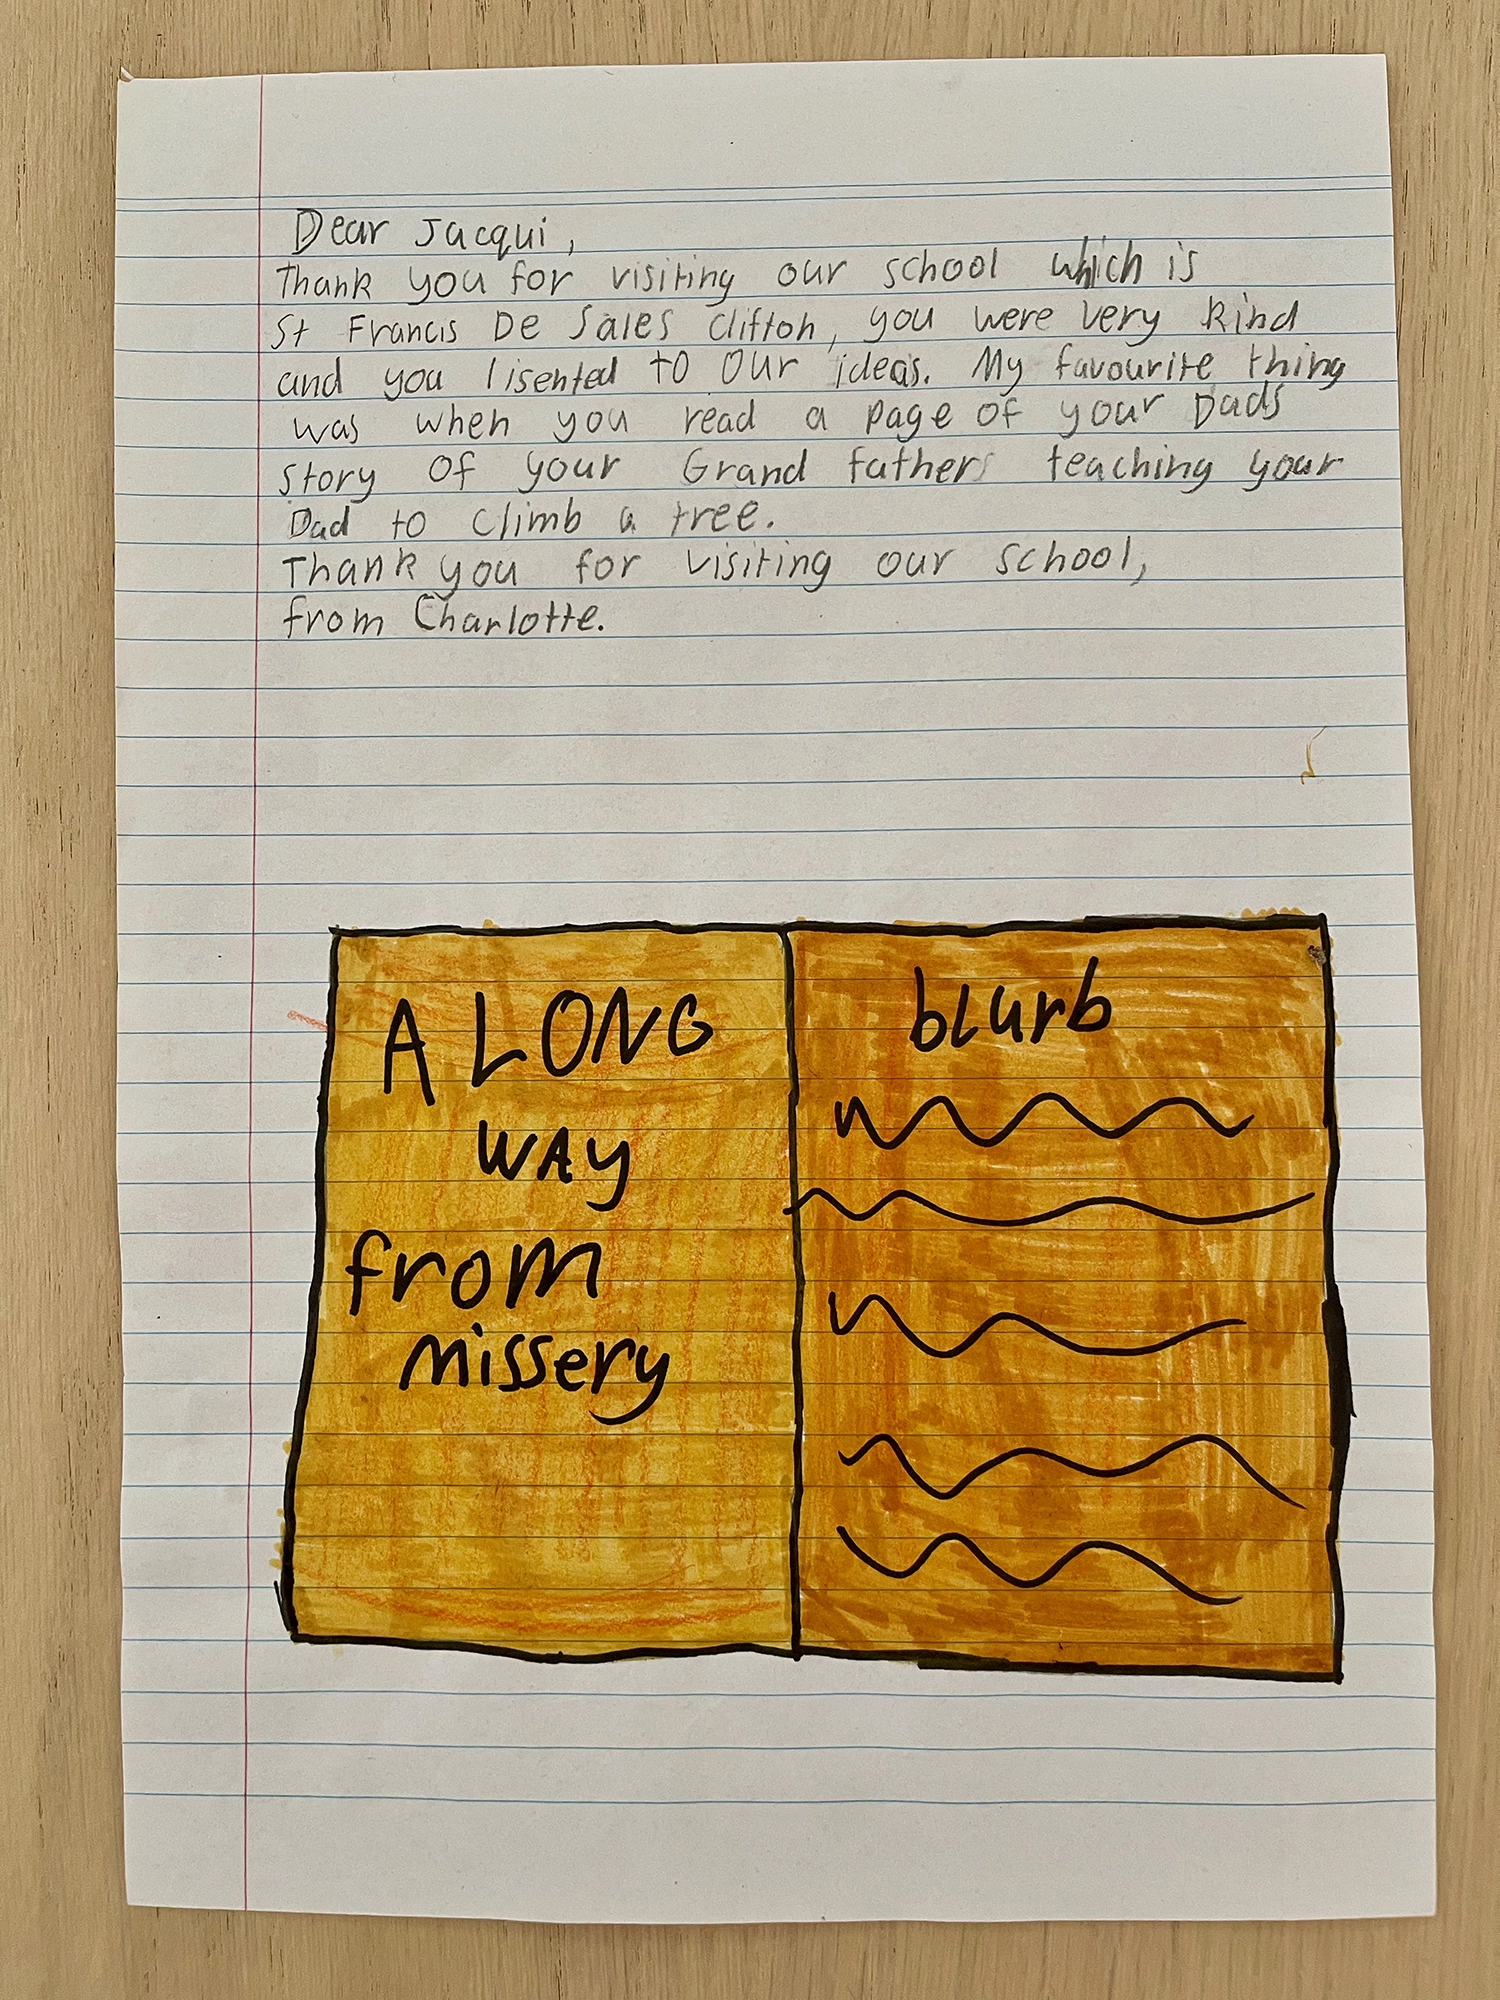 Dear Jacqui,
Thank you for visiting our school which is
St Francis De Sales Clifton, you were very kind
and you lisented to our ideas. My favourite thing
was when you read a page of your Dads
story of your Grand fathers teaching your
Dad to climb a tree.
Thank you for visiting our school,
from Charlotte.
A LONG
WAY
from
missery
blurb